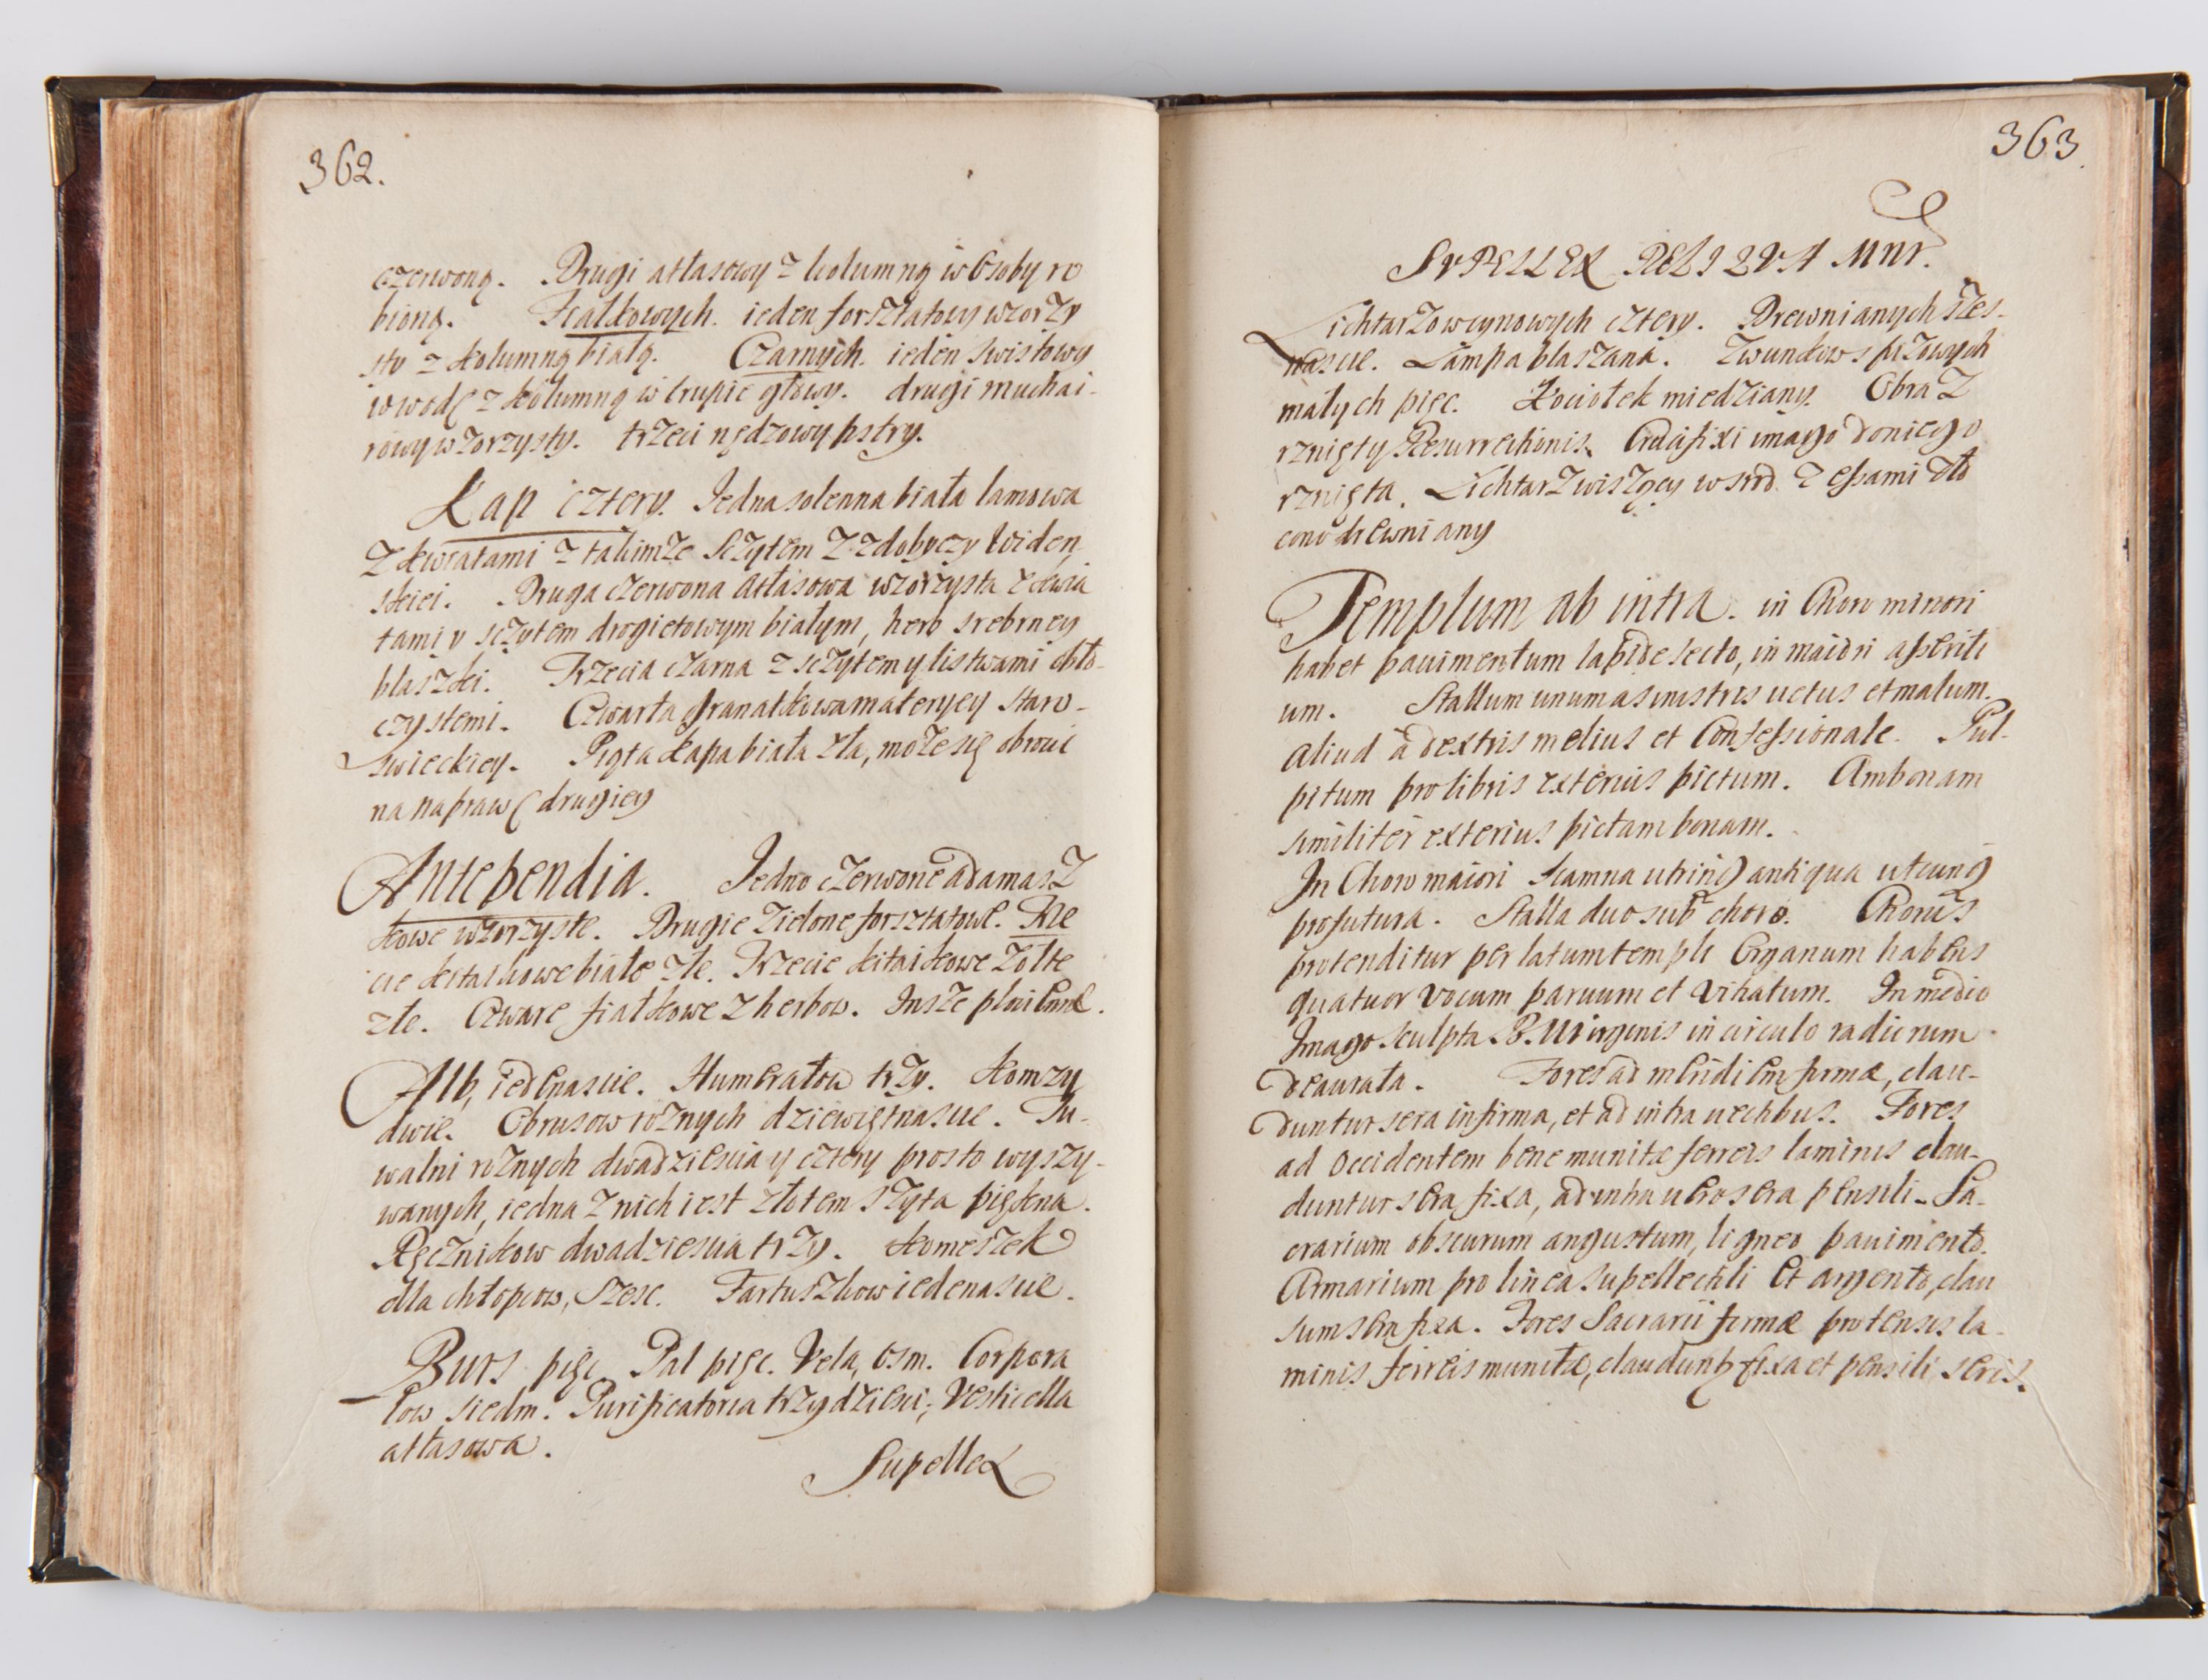 362.
czerwoną. Drugi atłasowy z kolumną w osoby ro
bioną. Fiałkowych. ieden forsztatowy wzorzy
sty z kolumną białą. Czarnych. ieden swistowy
w wodę z kolumną w trupie głowy. drugi muchai-
rowy wzorzysty. trzeci nędzowy pstry.
Kap cztery. Jedna solenna biała lamowa
z kwiatami z takimże sczytem z zdobyczy widen
skiei. Druga czerwona atłasowa wzorzysta z kwia
tami y sczytem drogietowym białym, herb srebrney
blaszki. Trzecia czarna z sczytem y listwami obło-
czystemi. Czwarta granatkowa materyey staro-
swieckiey. Piąta kapa biała zła, może się obroić
na naprawę drugiey
Antependia. Jedno czerwone adamasz
kowe wzorzyste. Drugie zielone forsztatowe. Trze
cie kitaikowe białe złe. Trzecie kitaikowe żółte
złe. Czware fiałkowe z herbow. Insze płocienne.
Alb, iedenascie. Humerałow trzy. Komzy
dwie. Obrusow roznych dziewiętnascie. Tu-
walni roznych dwadziescia y cztery prosto wyszy-
wanych, iedna z nich iest złotem szyta piękna.
Ręcznikow dwadziescia trzy. Komeszek
dla chłopcow, szesc. Fartuszkow iedenascie.
Burs pięc Pal pięc. Vela, osm. Corpora
low siedm. Purificatoria trzydziesci; Vesticella
atłasowa.
Supellex
363.
SVPELLEX RELIQVA MNR.
Lichtarzow cynowych cztery. Drewnianych szes-
nascie. Lampa blaszana. Zwunkow spizowych
małych pięc. Kociołek miedziany. Obraz
rznięty Resurrectionis. Crucifixi imago do niego
rznięta. Lichtarz wiszący w srod z essami zło
cono drewniany
Templum ab intra. in Choro minori
habet pauimentum lapide secto, in maiori asseriti
um. Stallum unum a sinistris uetus et malum.
Aliud à dextris melius et Confessionale. Pul-
pitum pro libris exterius pictum. Ambonam
similiter exterius pictam bonam.
In Choro maiori Scamna utrinq antiqua utcunq
profutura. Stalla duo sub choro. Chorus
protenditur per latum templi Organum habens
quatuor vocum paruum et vitiatum. In medio
Imago sculpta B. Virginis in circulo radiorum
deaurata. Fores ad meridiem firmæ, clau-
duntur sera infirma, et ad intra uectibus. Fores
ad Occidentem bene munitæ ferreis laminis clau-
duntur sera fixa, ad intra uero sera pensili. Sa-
crarium obscurum angustum, ligneo pauimento.
Armarium pro linea supellectili et argento, clau
sum sera fixa. Fores Sacrarii firmæ protensis la-
minis ferreis munitæ, clauduntr fixa et pensili seris.